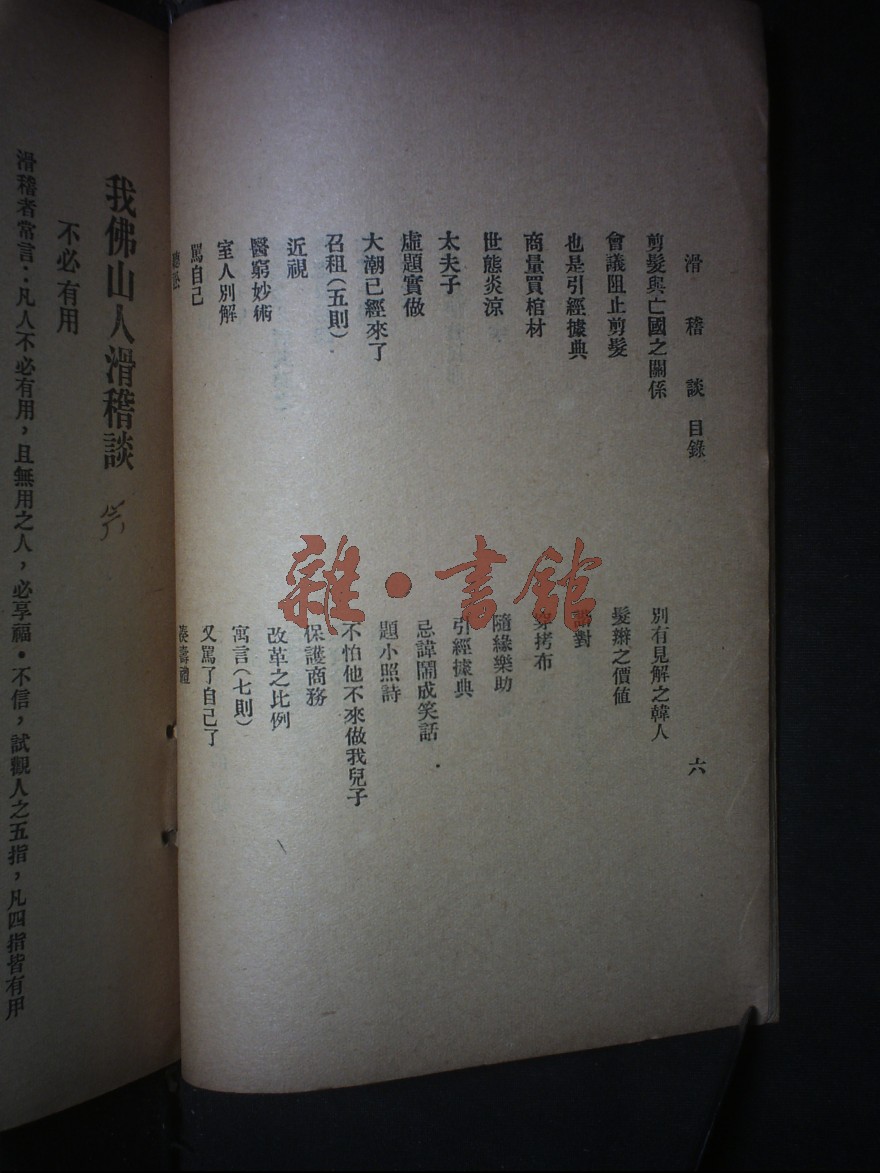 滑稽談目錄
六
剪髮與亡國之關係
別有見解之韓人
會議阻止剪髮
髮辮之價值
也是引經據典
對
商量買棺材
拷布
世態炎涼
隨緣樂助
太夫子
引經據典
虛題實做
忌諱鬧成笑話
大潮已經來了
題小照詩
召租(五則)
不怕他不來做我兒子
近視
保護商務
醫窮妙術
改革之比例
室人別解
寓言(七則)
罵自己
又罵了自己了
壽禮
我佛山人滑稽談
不必有用
滑稽者常言：凡人不必有用，且無用之人，必享福。不信，試觀人之五指，凡四指皆有用
雜·書館